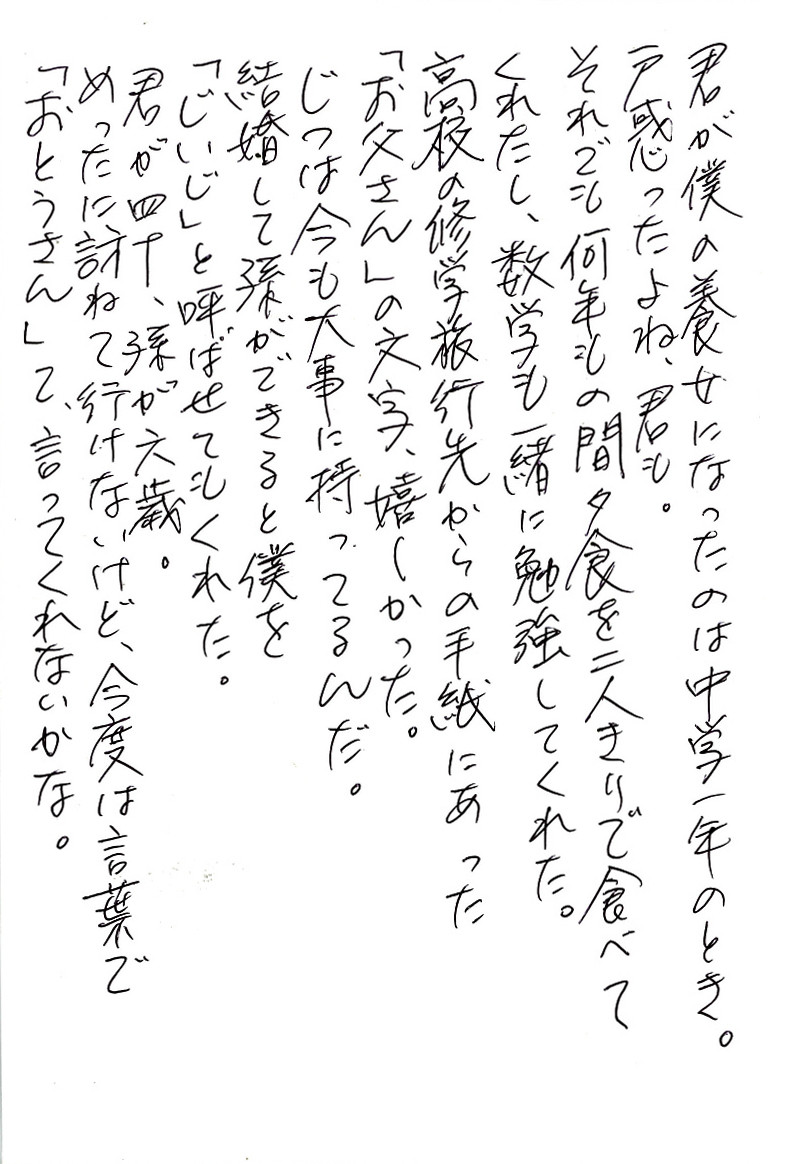 君が僕の養女になったのは中学一年のとき。
戸惑ったよね、君も。
それでも何年もの間夕食を二人きりで食べて
くれたし、数学も一緒に勉強してくれた。
高校の修学旅行先からの手紙にあった
「お父さん」の文字、嬉しかった。
じつは今も大事に持ってるんだ。
結婚して孫ができると僕を
「じいじ」と呼ばせてもくれた。
君が四十、孫が六歳。
めったに訪ねて行けないけど、今度は言葉で
「おとうさん」て、言ってくれないかな。